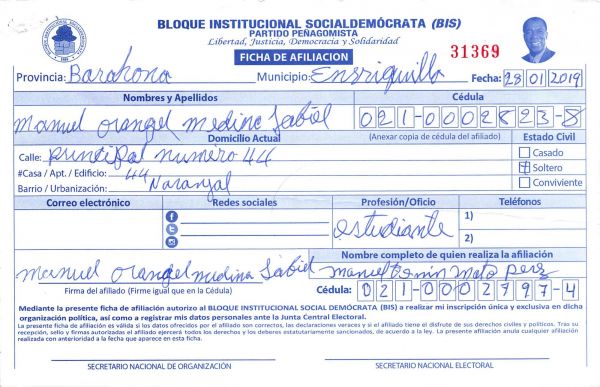 BLOQUE INSTITUCIONAL SOCIALDEMÓCRATA (BIS)
PARTIDO PEÑAGOMISTA
Libertad, Justicia, Democracia y Solidaridad
FICHA DE AFILIACION
31369
Provincia: Barahona Municipio: Enrriquillo Fecha: 28 01 2019
Nombres y Apellidos
Cédula
Manuel Orangel Medina
021-0002823-8
Domicilio Actual
(Anexar copia de cédula del afiliado)
Estado Civil
Calle: principal numero 44
Casado
#Casa / Apt. / Edificio: 44
Soltero
Barrio / Urbanización: Naranjal
Conviviente
Correo electrónico
Redes sociales
Profesión/Oficio
Teléfonos
estudiante
1)
2)
Nombre completo de quien realiza la afiliación
Manuel Orangel medina
manuel mato perez
Firma del afiliado (Firme igual que en la Cédula)
Cédula: 021-0002797-4
Mediante la presente ficha de afiliación autorizo al BLOQUE INSTITUCIONAL SOCIAL DEMÓCRATA (BIS) a realizar mi inscripción única y exclusiva en dicha
organización política, así como a registrar mis datos personales ante la Junta Central Electoral.
La presente ficha de afiliación es válida si los datos ofrecidos por el afiliado son correctos, las declaraciones veraces y si el afiliado tiene el disfrute de sus derechos civiles y políticos. Tras su
recepción, sello y firmas autorizadas el afiliado ejercerá todos los derechos y los deberes estatutariamente sancionados, de acuerdo a la ley. La presente afiliación anula cualquier afiliación
realizada con anterioridad a la fecha que aparece en esta ficha.
SECRETARIO NACIONAL DE ORGANIZACIÓN
SECRETARIO NACIONAL ELECTORAL